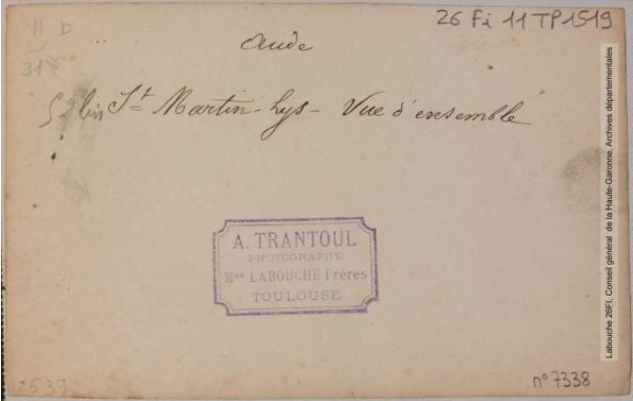 26 Fi 11 TP 1519
11 D ...
Aude
31
52 bis St Martin-Lys - Vue d'ensemble
A. TRANTOUL
PHOTOGRAPHE
Mon LABOUCHE Frères
TOULOUSE
2539
n° 7338
Labouche 26FI, Conseil général de la Haute-Garonne, Archives départementales